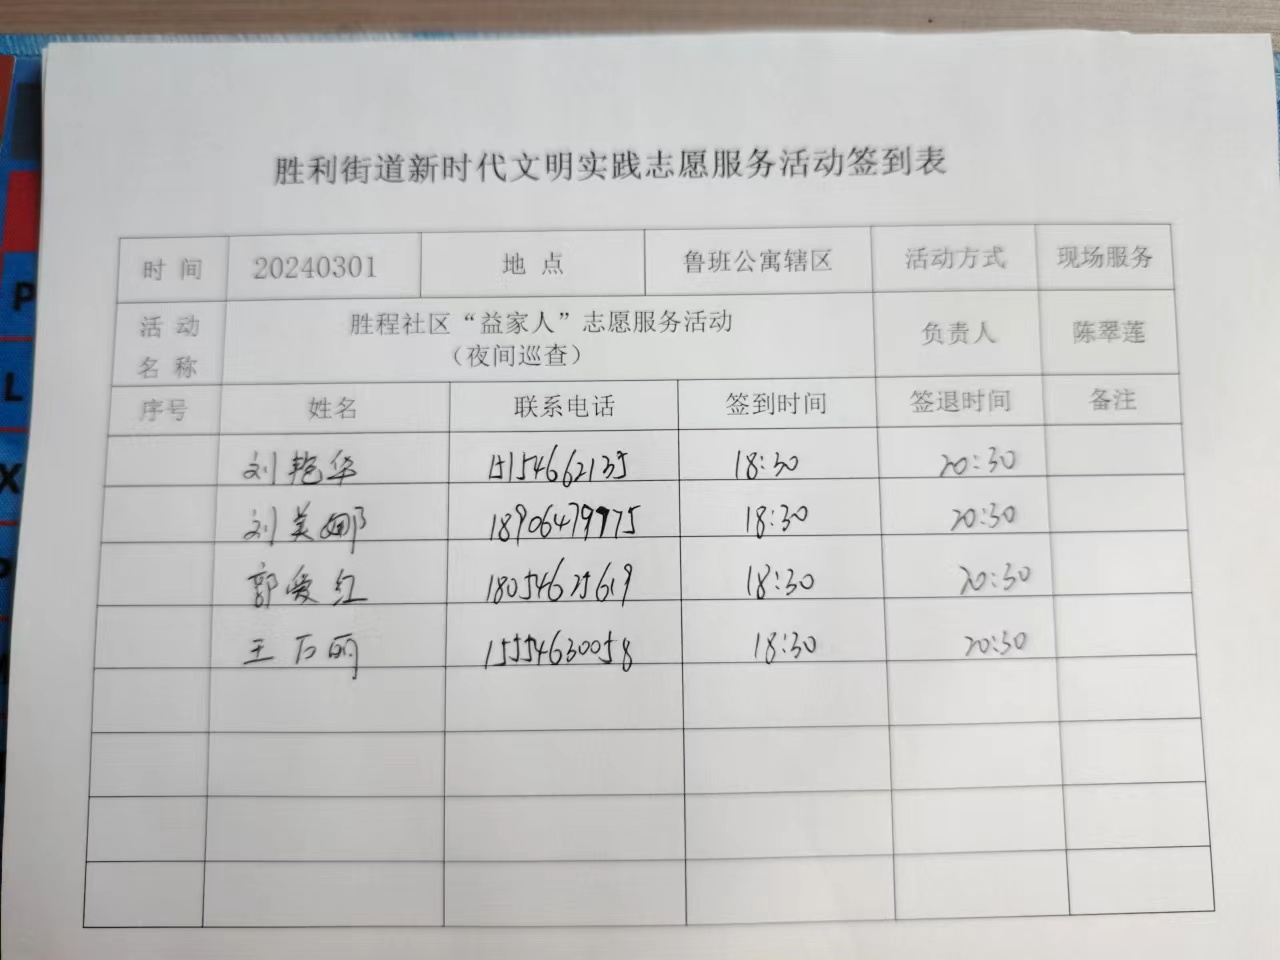 胜利街道新时代文明实践志愿服务活动签到表
时 间 20240301 地 点 鲁班公寓辖区 活动方式 现场服务
活 动 名 称 胜程社区“益家人”志愿服务活动 （夜间巡查） 负责人 陈翠莲
序号 姓名 联系电话 签到时间 签退时间 备注
刘艳华 15154662135 18:30 20:30
刘美娜 18906479975 18:30 20:30
郭爱红 18054625619 18:30 20:30
王 丽 15554630058 18:30 20:30
P
L
X